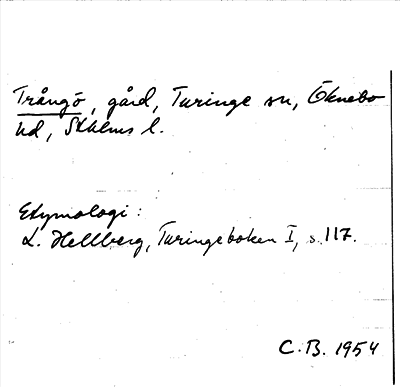 Trångö, gård, Turinge sn, Öknebo
hd, Sthlms l.
Etymologi:
L. Hellberg, Turingeboken I, s. 117.
C.B. 1954